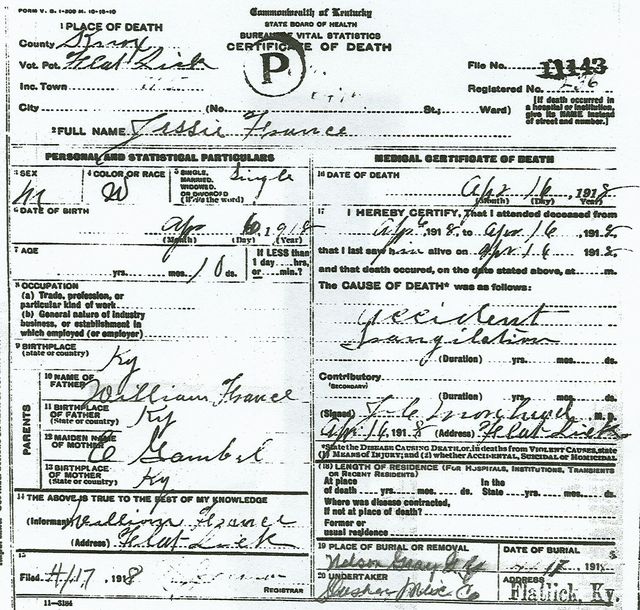 FORM V. S. 1-200 M. 10-18-10
Commonwealth of Kentucky
STATE BOARD OF HEALTH
BUREAU OF VITAL STATISTICS
CERTIFICATE OF DEATH
1 PLACE OF DEATH
County Knox
Vot. Pct. Flat Lick
Inc. Town
City (No. St.; Ward)
P
File No. 11143
Registered No.
[If death occurred in a hospital or institution, give its NAME instead of street and number.]
2 FULL NAME Jessie France
PERSONAL AND STATISTICAL PARTICULARS
3 SEX M
4 COLOR OR RACE W
5 SINGLE, MARRIED, WIDOWED, OR DIVORCED (Write the word) Single
6 DATE OF BIRTH Apr 6, 1918
(Month) (Day) (Year)
7 AGE
yrs. mos. 10 ds.
If LESS than 1 day hrs. or min.?
8 OCCUPATION
(a) Trade, profession, or particular kind of work
(b) General nature of industry business, or establishment in which employed (or employer)
9 BIRTHPLACE (State or country) Ky
PARENTS
10 NAME OF FATHER William France
11 BIRTHPLACE OF FATHER (State or country) Ky
12 MAIDEN NAME OF MOTHER
13 BIRTHPLACE OF MOTHER (State or country) Ky
14 THE ABOVE IS TRUE TO THE BEST OF MY KNOWLEDGE
(Informant) William France
(Address) Flat Lick
15
Filed 4/17 1918
REGISTRAR
11-3184
MEDICAL CERTIFICATE OF DEATH
16 DATE OF DEATH
Apr 16, 1918
(Month) (Day) (Year)
17 I HEREBY CERTIFY, That I attended deceased from
Apr 6 1918, to Apr 16 1918,
that I last saw him alive on Apr 16 1918,
and that death occured, on the date stated above, at m.
The CAUSE OF DEATH* was as follows:
accident
(Duration) yrs. mos. ds.
Contributory
(SECONDARY)
(Duration) yrs. mos. ds.
(Signed) M. D.
Apr 16, 1918 (Address) Flat Lick
*State the DISEASE CAUSING DEATH, or, in deaths from VIOLENT CAUSES, state (1) MEANS OF INJURY; and (2) whether ACCIDENTAL, SUICIDAL or HOMICIDAL
(18) LENGTH OF RESIDENCE (FOR HOSPITALS, INSTITUTIONS, TRANSIENTS OR RECENT RESIDENTS)
At place of death yrs. mos. ds. In the State yrs. mos. ds.
Where was disease contracted, if not at place of death?
Former or usual residence
19 PLACE OF BURIAL OR REMOVAL
DATE OF BURIAL
17 191
20 UNDERTAKER
ADDRESS
Flatlick, Ky.